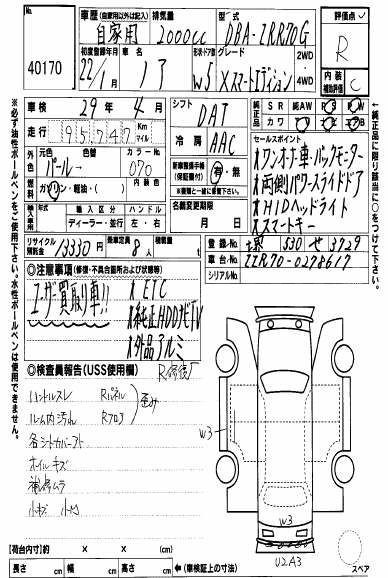 No.
40170
車歴(自家用以外は記入) 排気量 型式
自家用 2000cc DBA-ZRR70G
初度登録年月 車名 形状・ドア数 グレード 2WD・4WD
22/1 ノア W5 X スマートエディション
評価点
R
内装補助評価 C
車検 29年4月
シフト DAT
純正品 SR 純AW PS PW
カワ
走行 95747 Km マイル
冷房 AAC
セールスポイント
ワンオーナー車・バックモニター
両側パワースライドドア
HIDヘッドライト
スマートキー
外色 元色 色替 カラーNo.
パール 070
内装色
燃料 ガソリン・軽油・( )
新車整備手帳(保証書記載) 有・無
車歴と一緒にご提出ください。
輸入車用 輸入区分 ハンドル
ディーラー・並行 左・右
名義変更期限
月 日
リサイクル預託金 13330円
乗車定員 8人
積載量 t
登録No. 堺 330 せ 3729
車台No. ZRR70-0278617
シリアルNo.
◎注意事項(修復・不具合箇所および状態等)
ユーザー買取り車!!
ETC
純正HDDナビTV
外品アルミ
◎検査員報告(USS使用欄)
R修復
ハンドルスレ Rパネル
ルーム内汚れ Rフロア
歪み
各シートカバーフト
オイルキズ
補修ムラ
小キズ 小凹
W3
W3
U2A3
スペア
【荷台内寸】約 × × (cm)
長さ cm 幅 cm 高さ cm ←(車検証上の寸法)
※必ず油性ボールペンをご使用下さい。水性ボールペンは使用できません。
←純正品の限り該当に○をつけて下さい。